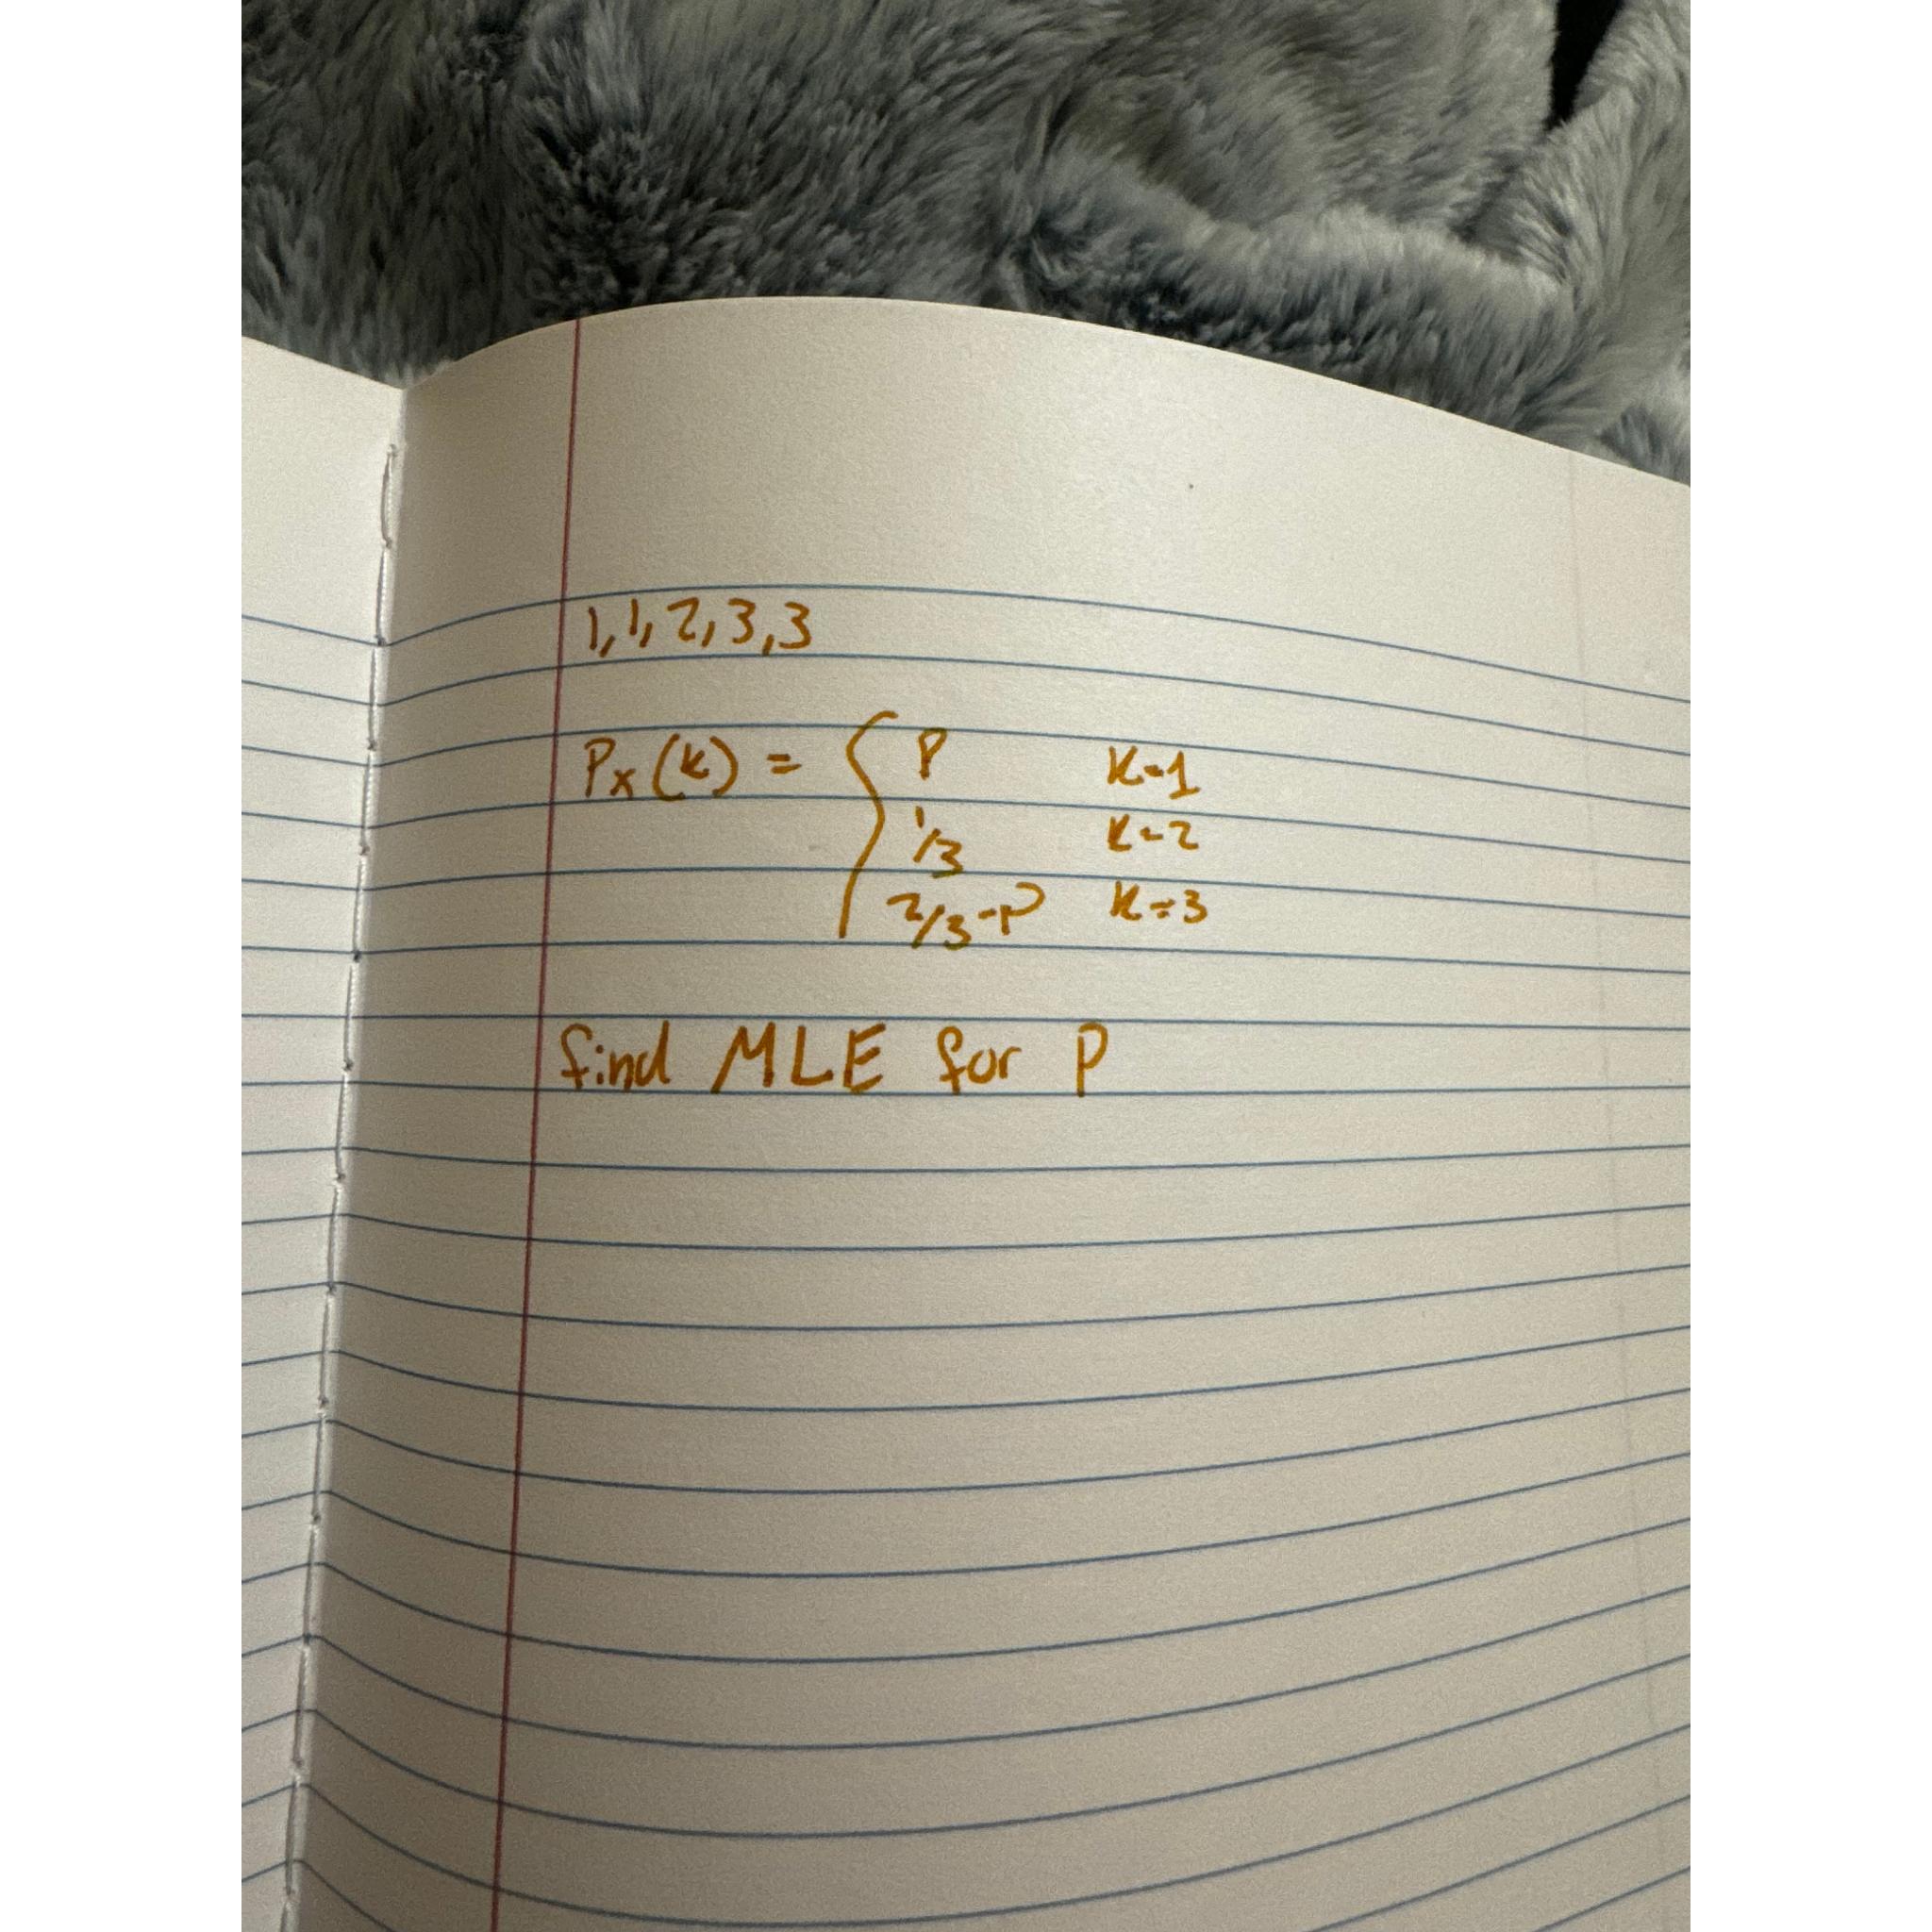 1, 1, 2, 3, 3
Px(k) = { P K=1
1/3 K=2
2/3-P K=3
find MLE for P